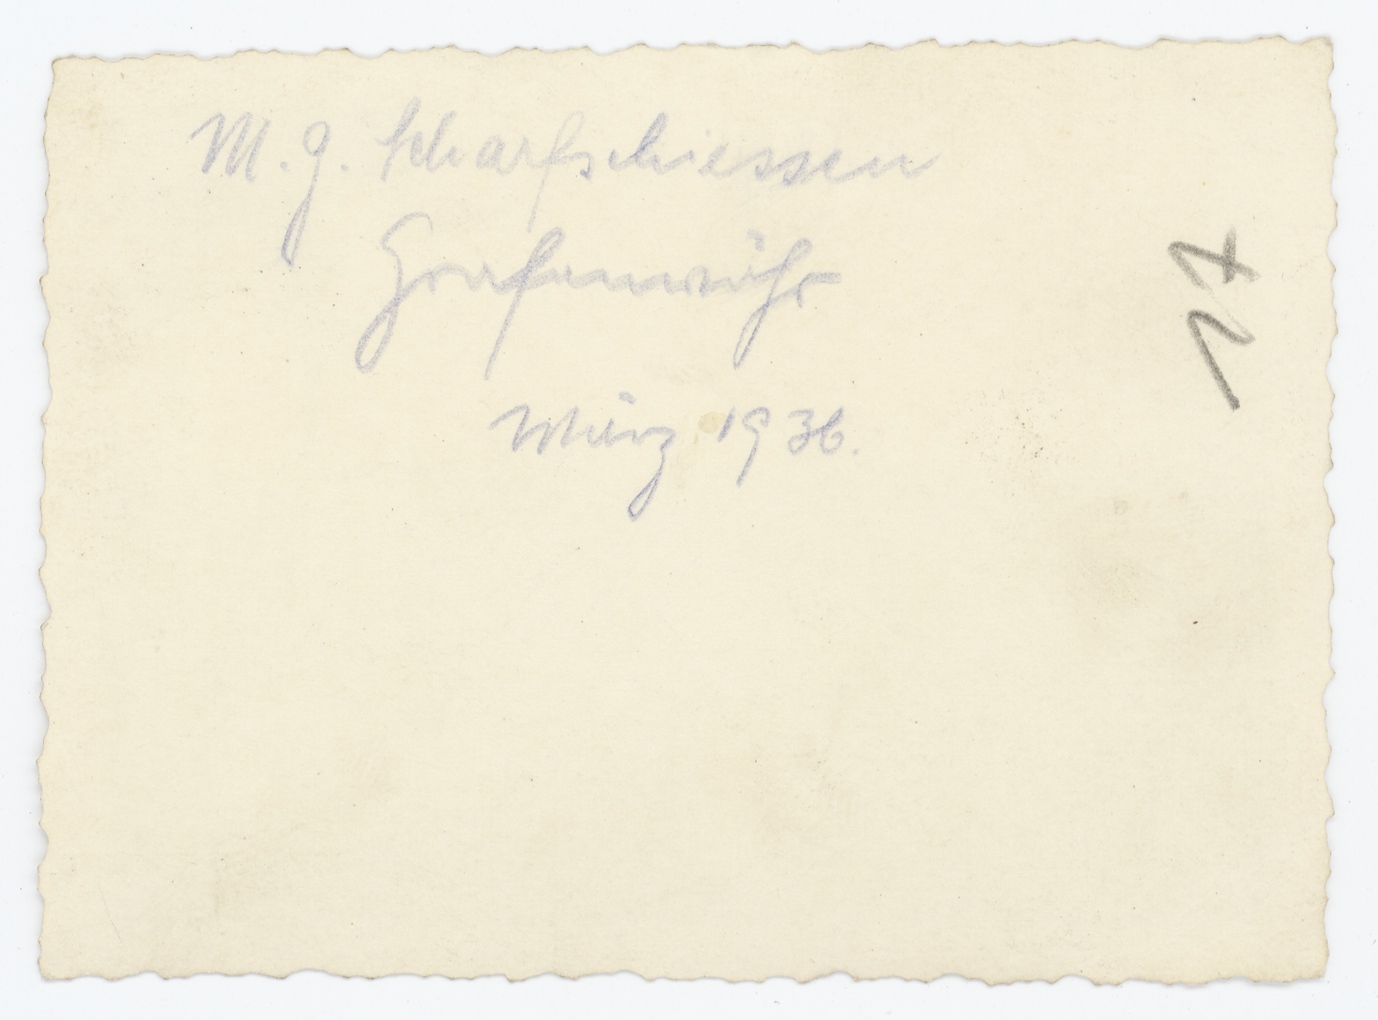 M. g. Scharfschiessen
Grafenwöhr
März 1936.
17